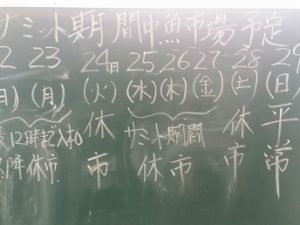 サミット期間中魚市場予定
22 23 24日 25 26 27 28 29
(日) (月) (火) (水) (木) (金) (土) (日)
12時まで入れ 休 サミット期間 休 平
降休市 市 休市 市 常